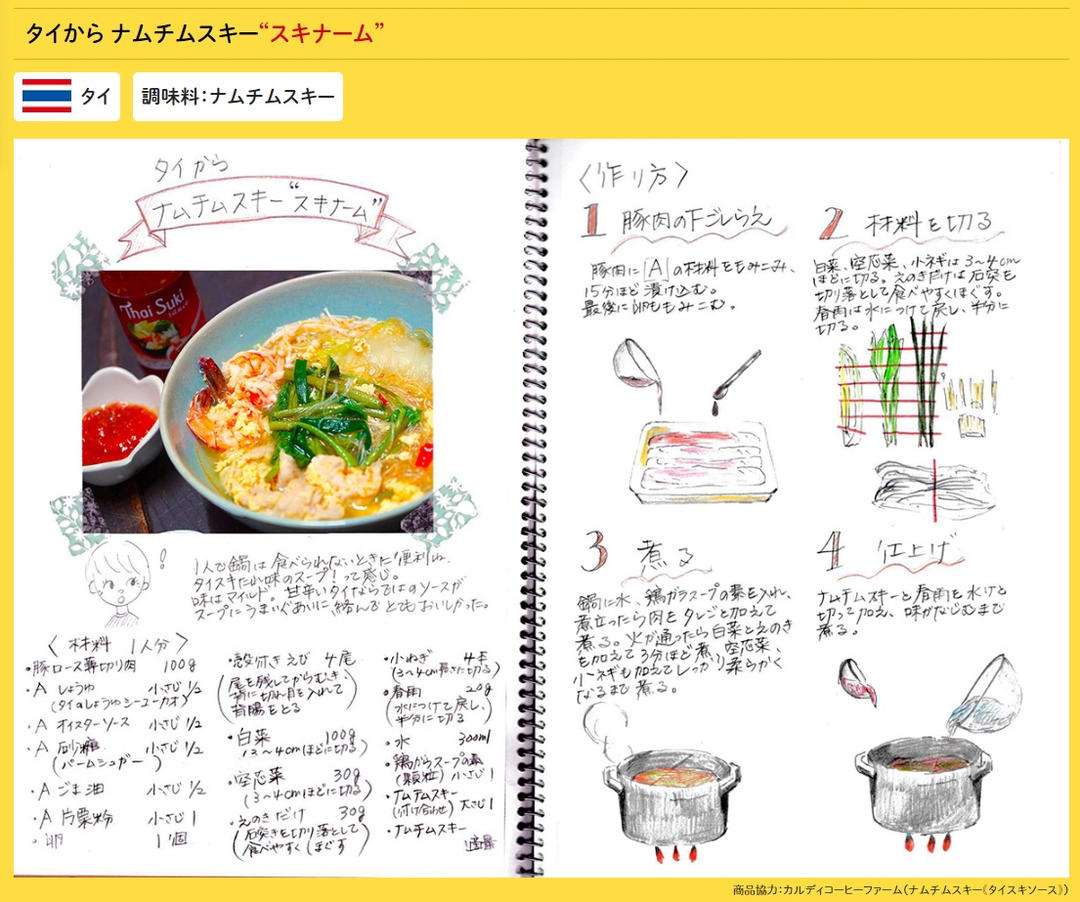 タイから ナムチムスキー“スキナーム”
タイ
調味料：ナムチムスキー
タイから
ナムチムスキー“スキナーム”
Thai Suki
sauce
1人で鍋は食べられないときに便利ね、
タイスキたい味のスープ！って感じ。
味はマイルド。甘辛いタイならではのソースが
スープにうまいぐあいに絡んでとてもおいしかった。
〈材料 1人分〉
・豚ロース薄切り肉 100g
・A しょうゆ 小さじ1/2
(タイのしょうゆシーユーカオ)
・A オイスターソース 小さじ1/2
・A 砂糖 小さじ1/2
(パームシュガー)
・A ごま油 小さじ1/2
・A 片栗粉 小さじ1
・卵 1個
・殻付きえび 4尾
(尾を残してからむき、
背に切れ目を入れて
背腸をとる)
・白菜 100g
(3〜4cmほどに切る)
・空芯菜 30g
(3〜4cmほどに切る)
・えのきだけ 30g
(石突きを切り落として
食べやすくほぐす)
・小ねぎ 4本
(3〜4cm長さに切る)
・春雨 20g
(水につけて戻し、
半分に切る)
・水 300ml
・鶏がらスープの素
(顆粒) 小さじ1
・ナムチムスキー 大さじ1
(付け合わせ)
・ナムチムスキー
適量
〈作り方〉
1 豚肉の下ごしらえ
豚肉に「A」の材料をもみこみ、
15分ほど漬け込む。
最後に卵ももみこむ。
2 材料を切る
白菜、空芯菜、小ネギは3〜4cm
ほどに切る。えのきだけは石突を
切り落として食べやすくほぐす。
春雨は水につけて戻し、半分に
切る。
3 煮る
鍋に水、鶏ガラスープの素を入れ、
煮立ったら肉をタレごと加えて
煮る。火が通ったら白菜とえのき
を加えて3分ほど煮、空芯菜、
小ネギも加えてしっかり柔らかく
なるまで煮る。
4 仕上げ
ナムチムスキーと春雨を水けを
切って加え、味がなじむまで
煮る。
商品協力：カルディコーヒーファーム（ナムチムスキー《タイスキソース》）